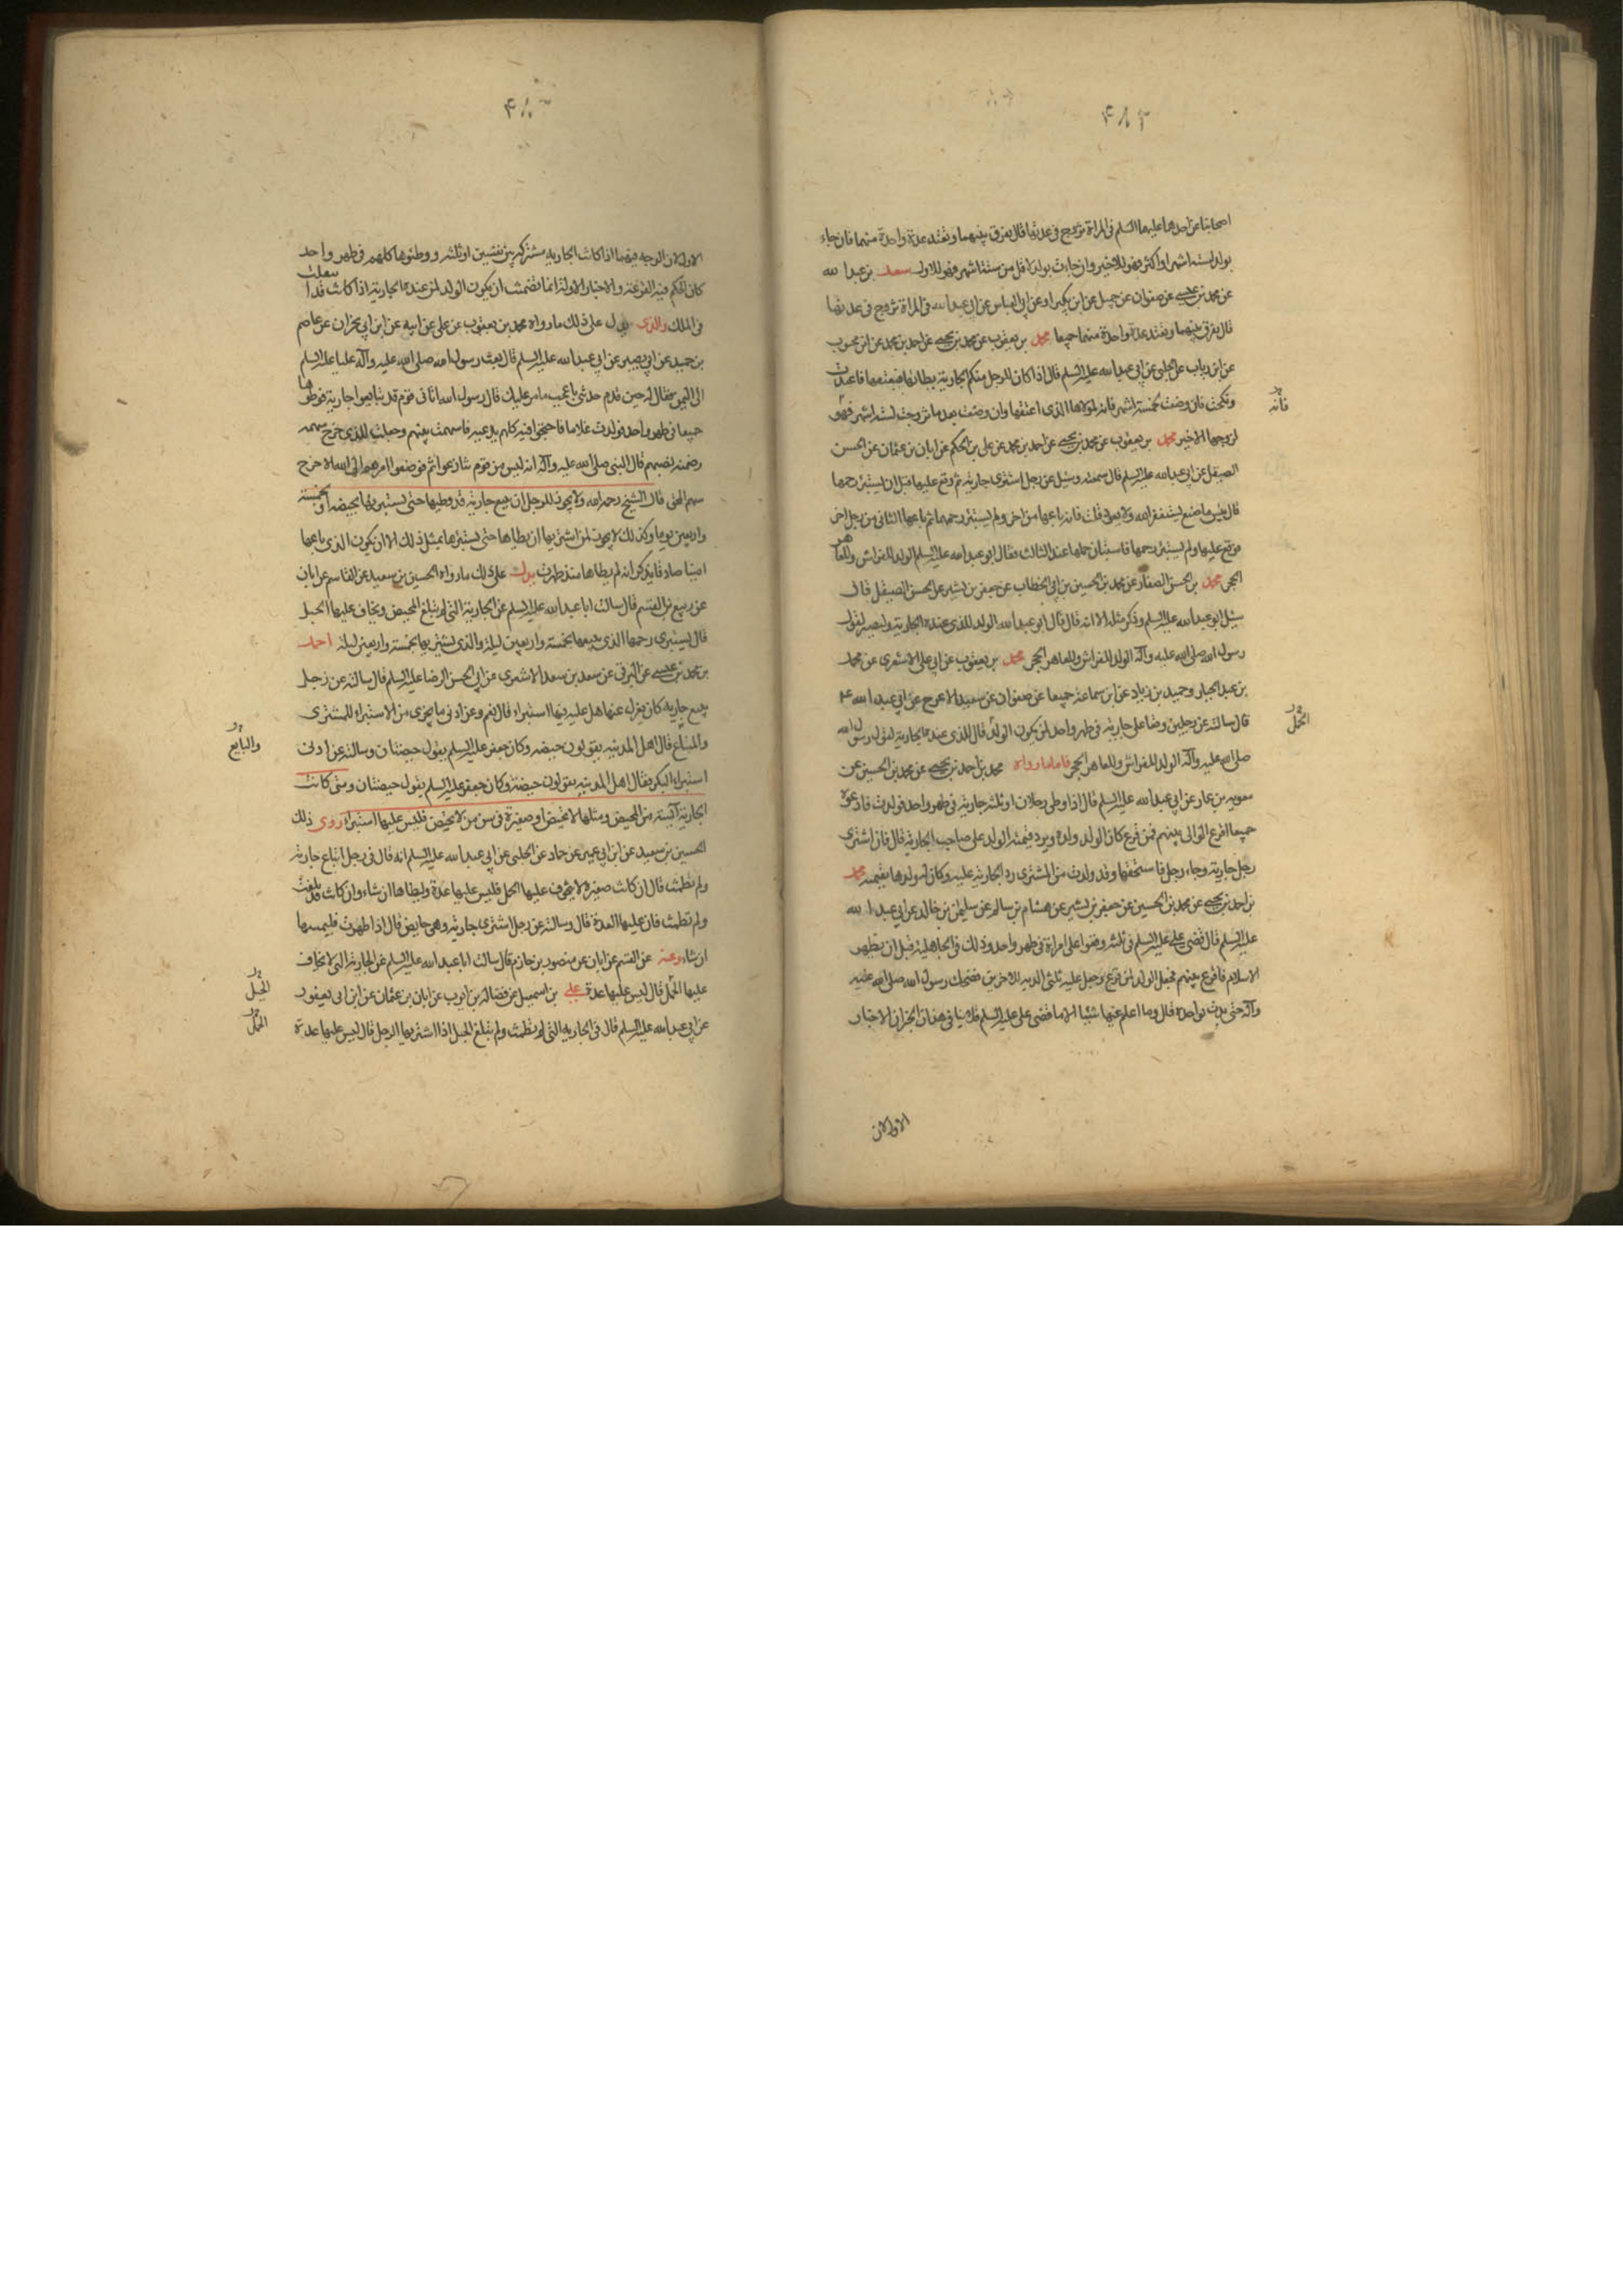 اصحابنا عن احدهما عليهما السلم فى المراة تزوج فى عدتها قال يفرق بينهما وتعتد عدة واحدة منهما فان جاءت
بولد لستة اشهر او اكثر فهو للاخير وان جاءت بولد لاقل من ستة اشهر فهو للاول سعد بن عبد الله
عن محمد بن عيسى عن صفوان عن جميل عن ابن بكير او عن ابى العباس عن ابى عبد الله فى المراة تزوج فى عدتها
قال يفرق بينهما وتعتد عدة واحدة منهما جميعا محمد بن يعقوب عن محمد بن يحيى عن احمد بن محمد عن ابن محبوب
عن ابن رياب عن الحلبى عن ابى عبد الله عليه السلم قال اذا كان للرجل منكم الجارية يطاها فيعتقها فاعتدت
ونكحت فان وضعت لخمسة اشهر فانه لمولاها الذى اعتقها وان وضعت بعد ما تزوجت لستة اشهر فهو
فانه
لزوجها الاخير محمد بن يعقوب عن محمد بن يحيى عن احمد بن محمد عن على بن الحكم عن ابان بن عثمان عن الحسن
الصيقل عن ابى عبد الله عليه السلم قال سمعته وسئل عن رجل اشترى جارية ثم وقع عليها قبل ان يستبرئ رحمها
قال بئس ما صنع يستغفر الله ولا يعود قلت فانه باعها من اخر ولم يستبرئ رحمها ثم باعها الثانى من رجل اخر
فوقع عليها ولم يستبرئ رحمها فاستبان حملها عند الثالث فقال ابو عبد الله عليه السلم الولد للفراش وللعاهر
الحجر محمد بن الحسن الصفار عن محمد بن الحسين بن ابى الخطاب عن جعفر بن بشير عن الحسن الصيقل قال
سئل ابو عبد الله عليه السلم وذكر مثله الا انه قال قال ابو عبد الله الولد للذى عنده الجارية وليصبر لقول
رسول الله صلى الله عليه وآله الولد للفراش وللعاهر الحجر محمد بن يعقوب عن ابى على الاشعرى عن محمد
بن عبد الجبار وحميد بن زياد عن ابن سماعة جميعا عن صفوان عن سعيد الاعرج عن ابى عبد الله ع
قال سالته عن رجلين وقعا على جارية فى طهر واحد لمن يكون الولد قال للذى عنده الجارية لقول رسول الله
الحمل
صلى الله عليه وآله الولد للفراش وللعاهر الحجر فاما ما رواه محمد بن احمد بن يحيى عن محمد بن الحسين عن
معوية بن عمار عن ابى عبد الله عليه السلم قال اذا وطى رجلان او ثلثة جارية فى طهر واحد فولدت فادعوه
جميعا اقرع الوالى بينهم فمن قرع كان الولد ولده ويرد قيمة الولد على صاحب الجارية قال فان اشترى
رجل جارية وجاء رجل فاستحقها وقد ولدت من المشترى رد الجارية عليه وكان له ولدها بقيمته محمد
بن احمد بن يحيى عن محمد بن الحسين عن جعفر بن بشير عن هشام بن سالم عن سليمن بن خالد عن ابى عبد الله
عليه السلم قال قضى على عليه السلم فى ثلثه وقعوا على امراة فى طهر واحد وذلك فى الجاهلية قبل ان يظهر
الاسلام فاقرع بينهم فجعل الولد لمن قرع وجعل عليه ثلثى الدية للاخرين فضحك رسول الله صلى الله عليه
وآله حتى بدت نواجذه قال وما اعلم فيها شيئا الا ما قضى على عليه السلم فلا ينافى هذان الخبران الاخبار
الاولة لان
الاولة لان الوجه فيهما اذا كانت الجارية مشتركة بين نفسين او ثلثه ووطئوها كلهم فى طهر واحد
كان الحكم فيه القرعة والاخبار الاولة انما تضمنت ان يكون الولد لمن عنده الجارية اذا كانت قد انتقلت
فى الملك والذى يدل على ذلك ما رواه محمد بن يعقوب عن على عن ابيه عن ابن ابى نجران عن عاصم
بن حميد عن ابى بصير عن ابى عبد الله عليه السلم قال بعث رسول الله صلى الله عليه وآله عليا عليه السلم
الى اليمن فقال له حين قدم حدثنى باعجب ما مر عليك قال رسول الله اتانى قوم قد تبايعوا جارية فوطوها
جميعا فى طهر واحد فولدت غلاما فاحتجوا فيه كلهم يدعيه فاسهمت بينهم وجعلت للذى خرج سهمه
وضمنته نصيبهم قال النبى صلى الله عليه وآله انه ليس من قوم تنازعوا ثم فوضعوا امرهم الى الله الا خرج
سهم المحق قال الشيخ رحمه الله ولا يجوز للرجل ان يبيع جارية قد وطيها حتى يستبرئها بحيضة او خمسة
واربعين يوما وكذلك لا يجوز لمن اشتريها ان يطاها حتى يستبرئها بمثل ذلك الا ان يكون الذى باعها
امينا صادقا يذكر انه لم يطاها منذ طهرت يدل على ذلك ما رواه الحسين بن سعيد عن القاسم عن ابان
عن ربيع بن القسم قال سالت ابا عبد الله عليه السلم عن الجارية التى لم تبلغ المحيض ويخاف عليها الحبل
قال يستبرى رحمها الذى يبيعها بخمسة واربعين ليلة والذى يشتريها بخمسة واربعين ليلة احمد
بن محمد بن عيسى عن البرقى عن سعد بن سعد الاشعرى عن ابى الحسن الرضا عليه السلم قال سالته عن رجل
يبيع جارية كان يعزل عنها هل عليه فيها استبراء قال نعم وعن ادنى ما يجزى من الاستبراء للمشترى
والمبتاع قال اهل المدينة يقولون حيضة وكان جعفر عليه السلم يقول حيضتان وسالته عن ادنى
والبايع
استبراء البكر فقال اهل المدينة يقولون حيضة وكان جعفر عليه السلم يقول حيضتان ومتى كانت
الجارية آئسة من المحيض ومثلها لا تحيض او صغيرة فى سن من لا تحيض فليس عليها استبراء روى ذلك
الحسين بن سعيد عن ابن ابى عمير عن حماد عن الحلبى عن ابى عبد الله عليه السلم انه قال فى رجل ابتاع جارية
ولم تطمث قال ان كانت صغيرة لا يتخوف عليها الحبل فليس عليها عدة وليطاها ان شاء وان كانت قد بلغت
ولم تطمث فان عليها العدة قال وسالته عن رجل اشترى جارية وهى حايض قال اذا طهرت فليمسها
ان شاء وعنه عن القسم عن ابان عن منصور بن حازم قال سالت ابا عبد الله عليه السلم عن الجارية التى لا يخاف
عليها الحمل قال ليس عليها عدة على بن اسمعيل عن فضالة بن ايوب عن ابان بن عثمان عن ابن ابى يعفور
الحبل
عن ابى عبد الله عليه السلم قال فى الجارية التى لم تطمث ولم تبلغ الحبل اذا اشتريها الرجل قال ليس عليها عدة
الحمل